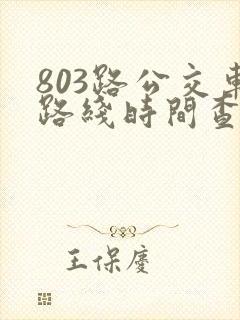 803路公交車
路綫時間查
王保慶